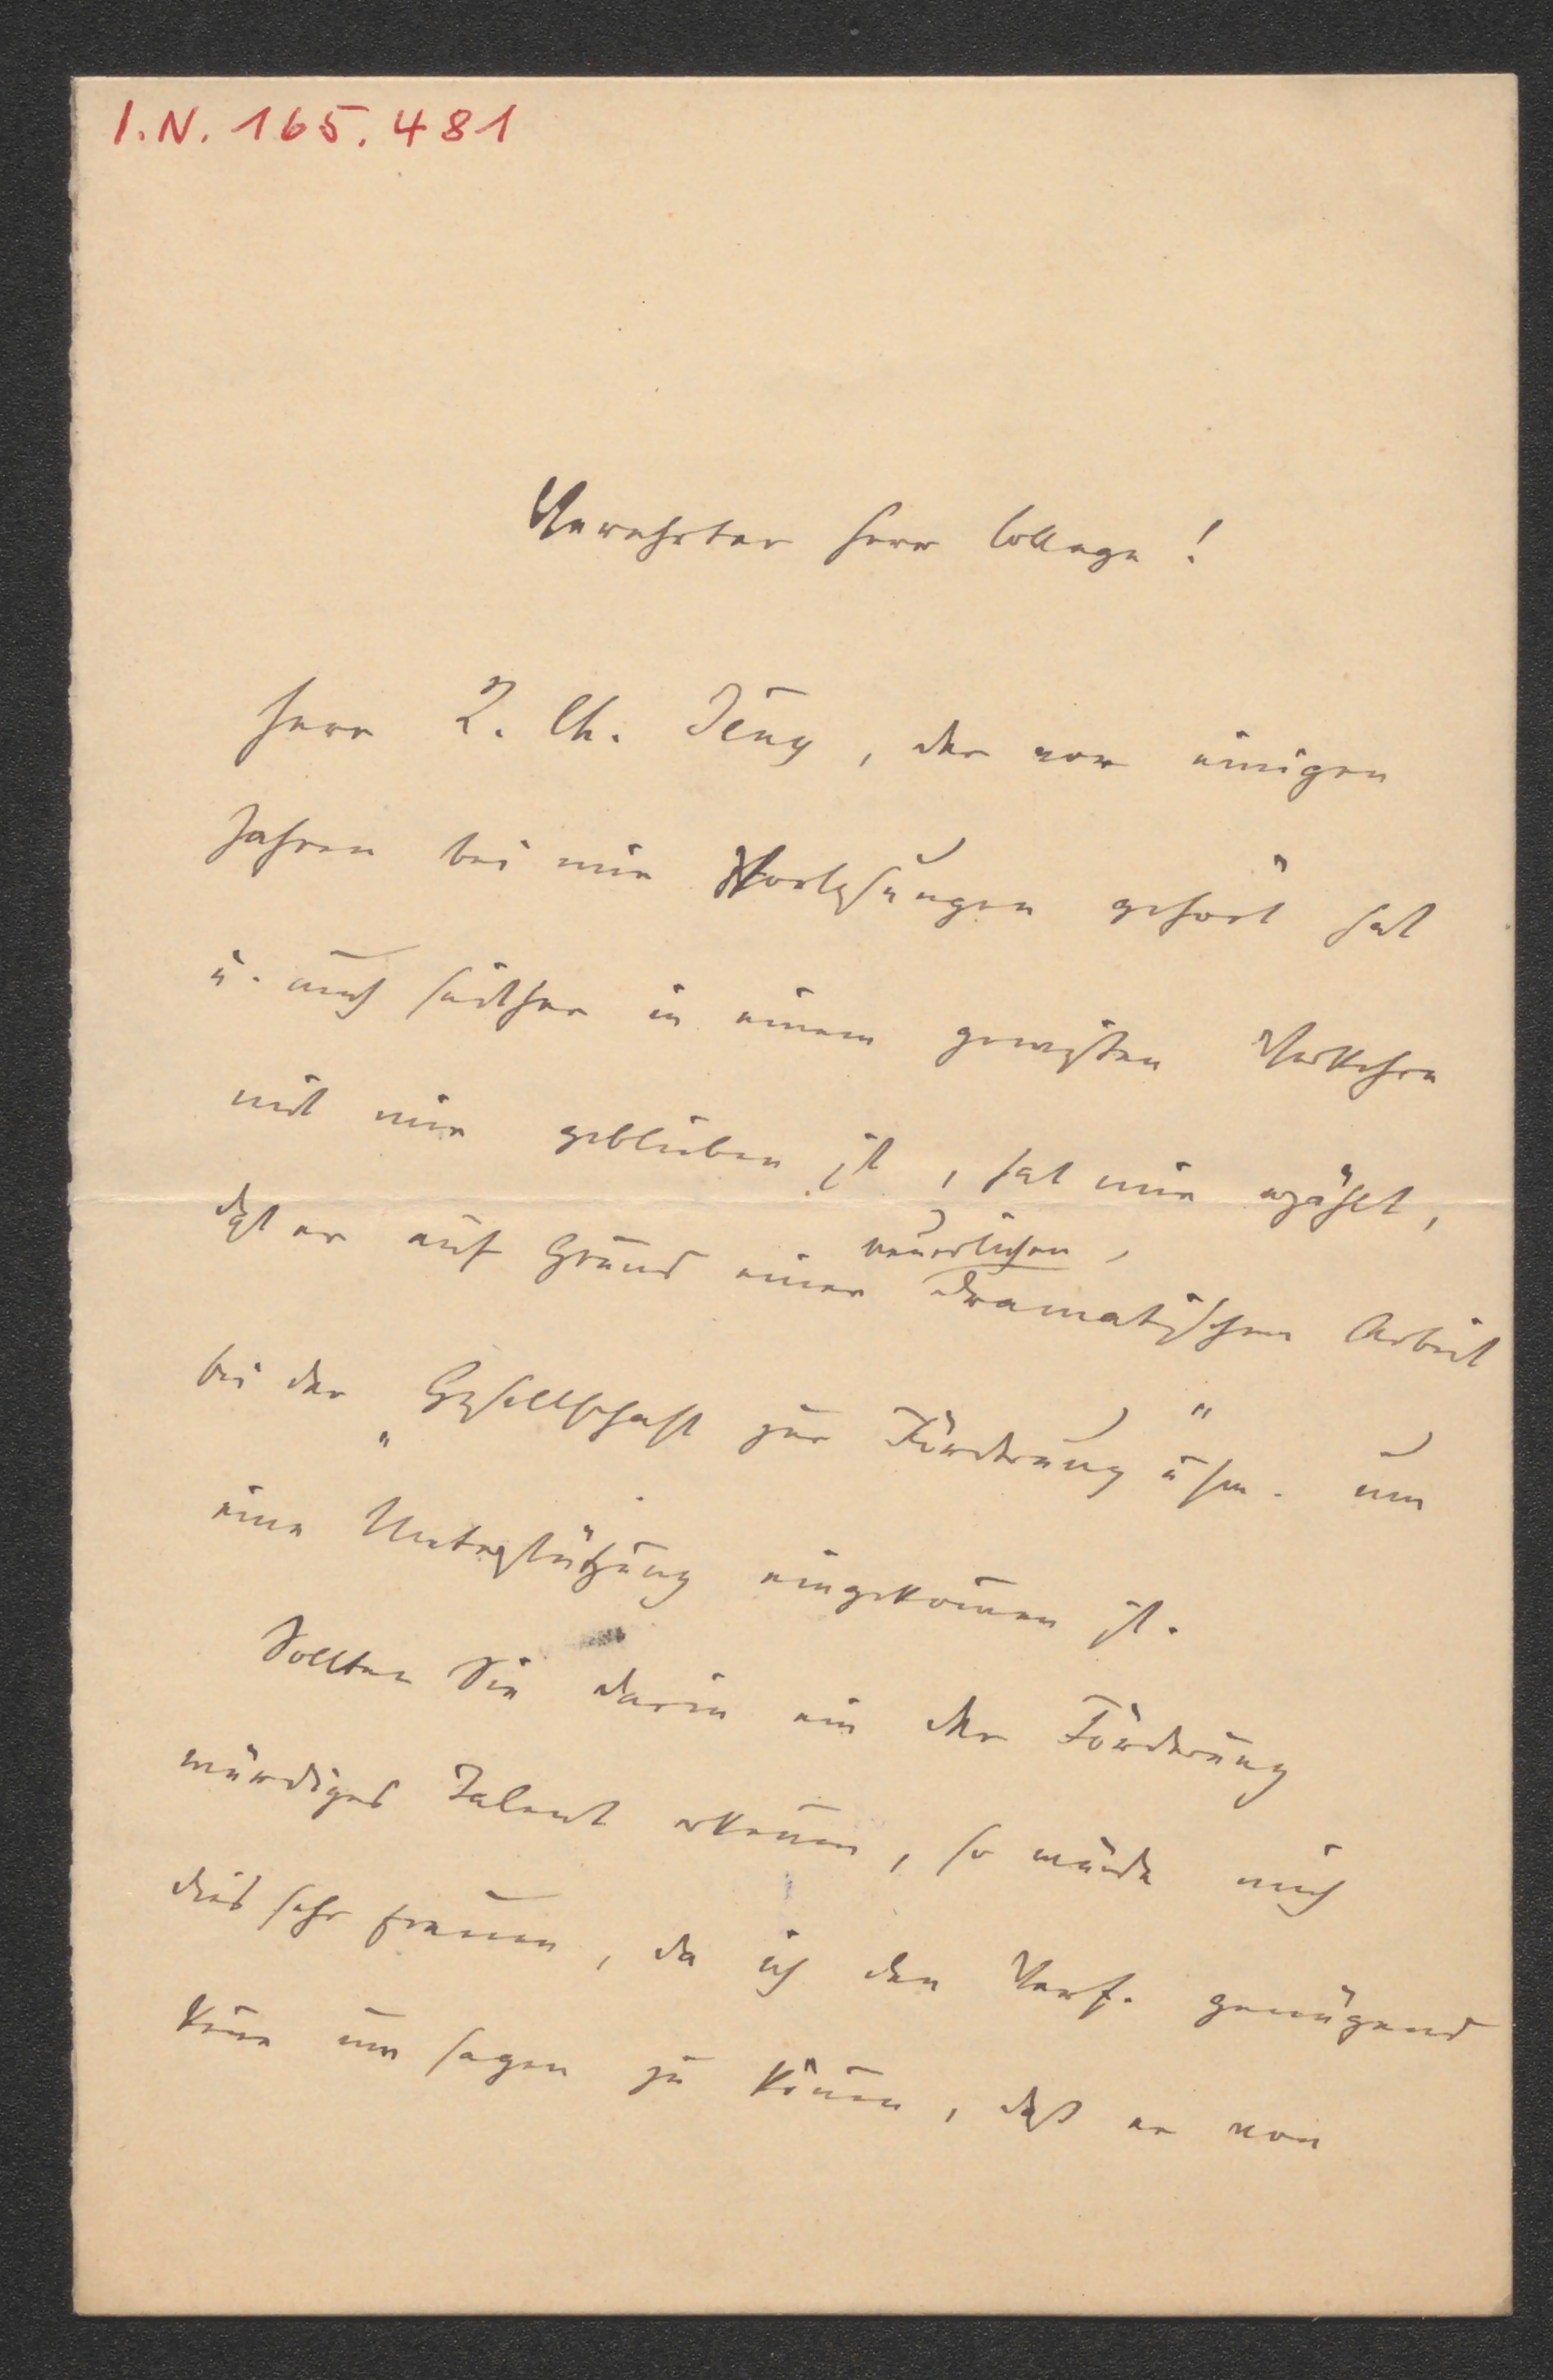 I.N. 165.481
Verehrter Herr College!
Herr 2. Ch. Jeny, der vor einigen
Jahren bei mir Vorlesungen gehört hat
u. auch seither in einem gewissen Verkehre
mit mir geblieben ist, hat mir erzählt,
daß er auf Grund einer neuerlichen,
dramatischen Arbeit
bei der „Gesellschaft zur Förderung" usw. um
eine Unterstützung eingekom̄en ist.
Sollten Sie darin ein der Förderung
würdiges Talent erken̄en, so würde mich
dies sehr freuen, da ich den Verf. genügend
ken̄e um sagen zu kön̄en, daß er von